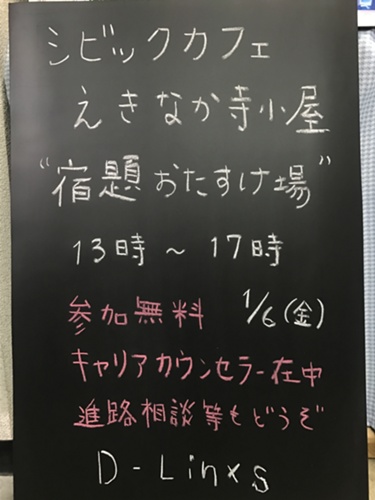 シビックカフェ
えきなか寺小屋
“宿題おたすけ場”
13時～17時
参加無料 1/6(金)
キャリアカウンセラー在中
進路相談等もどうぞ
D-Links